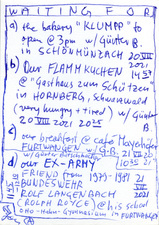 WAITING FOR
a) the bakery "KLUMPP" to
open @ 3pm w/Günter B.
in SCHÖNMÜNZACH 20 VIII
2021
14:59
b) Our FLAMMKUCHEN
@ "Gasthaus zum Schützen
in HORNBERG, Schwarzwald
(very hungry + tired) w/Günter B.
20 VIII 2021 20:25
c) our breakfast @ café Mayerhöfer
FURTWANGEN w/G.B. 21 VIII 20
d) our EX-ARMY
FRIEND from 1979-1981
BUNDESWEHR
ROLF LANGENBACH
(ROLPH ROYCE) @ his school
Otto-Hahn-Gymnasium in FURTWANGEN